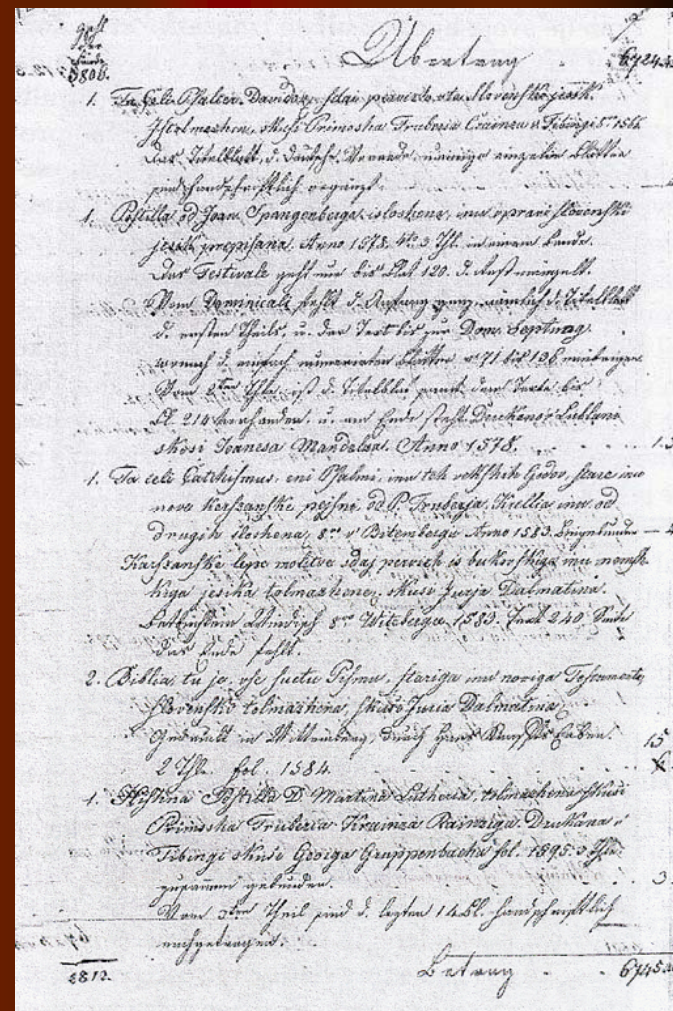 Übertrag 6724
2806.
1. Ta Celi Psalter Davidou, sdai pervizh vta Slovenski jesik
Istolmazhen, skusi Primosha Truberia Crainza v Tibingi 8° 1566
das Titelblatt, d. deutsche Vorrede u. einige einzelne Blätter
sind handschriftlich ergänzt.
1. Postilla od Joan. Spangenberga isloshena, inu vpravi slovenski
jesik prepisana. Anno 1578. 4to 3 Thl. in einem Bande.
Das Festivale geht nur bis Blat 120. d. Rest mangelt.
Vom Dominicali fehlt d. Anfang ganz, nämlich d. Titelblatt
d. ersten Theils, u. der Text bis zur Dom. Septuag
wornach d. einfach numerirten Blätter
Vom 2ten Thle. ist d. Titelblat samt dem Texte bis
Bl. 214 vorhanden, u. am Ende steht Druckanu v Lublani
skosi Joanesa Mandelza. Anno 1578.
1. Ta celi Catehismus, eni Psalmi, inu teh vekshih Godov, stare inu
nove kerszhanske pejsni, od P. Truberja, Krellia inu od
drugih slošhena, 8° v Bitembergi Anno 1583.
Karszanske lepe molitve sdaj pervizh is bukovskiga inu nemsh-
kiga jesika tolmazhene, skusi Jurja Dalmatina.
Betbüchlein Windisch 8° Witeberga, 1583. 240 Seite
das Ende fehlt.
2. Biblia, tu je, vse Svetu Pismu, stariga inu noviga Testamenta,
Slovenski tolmazhena, skusi Juria Dalmatina,
Gedruckt in Wittemberg, durch Hans Kraffts Erben. 15
2 Thle. fol. 1584.
1. Hishna Postilla D. Martina Lutheria, tolmazhena skusi
Primosha Truberia Krainza Rainziga. Drukana v
Tibingi skusi Georga Gruppenbacha fol. 1595. 3 Thle.
zusammen gebunden. 3
Vom 3ten Theil sind d. lezten 14 Bl. handschriftlich
nachgetragen.
2812. Betrag 6745